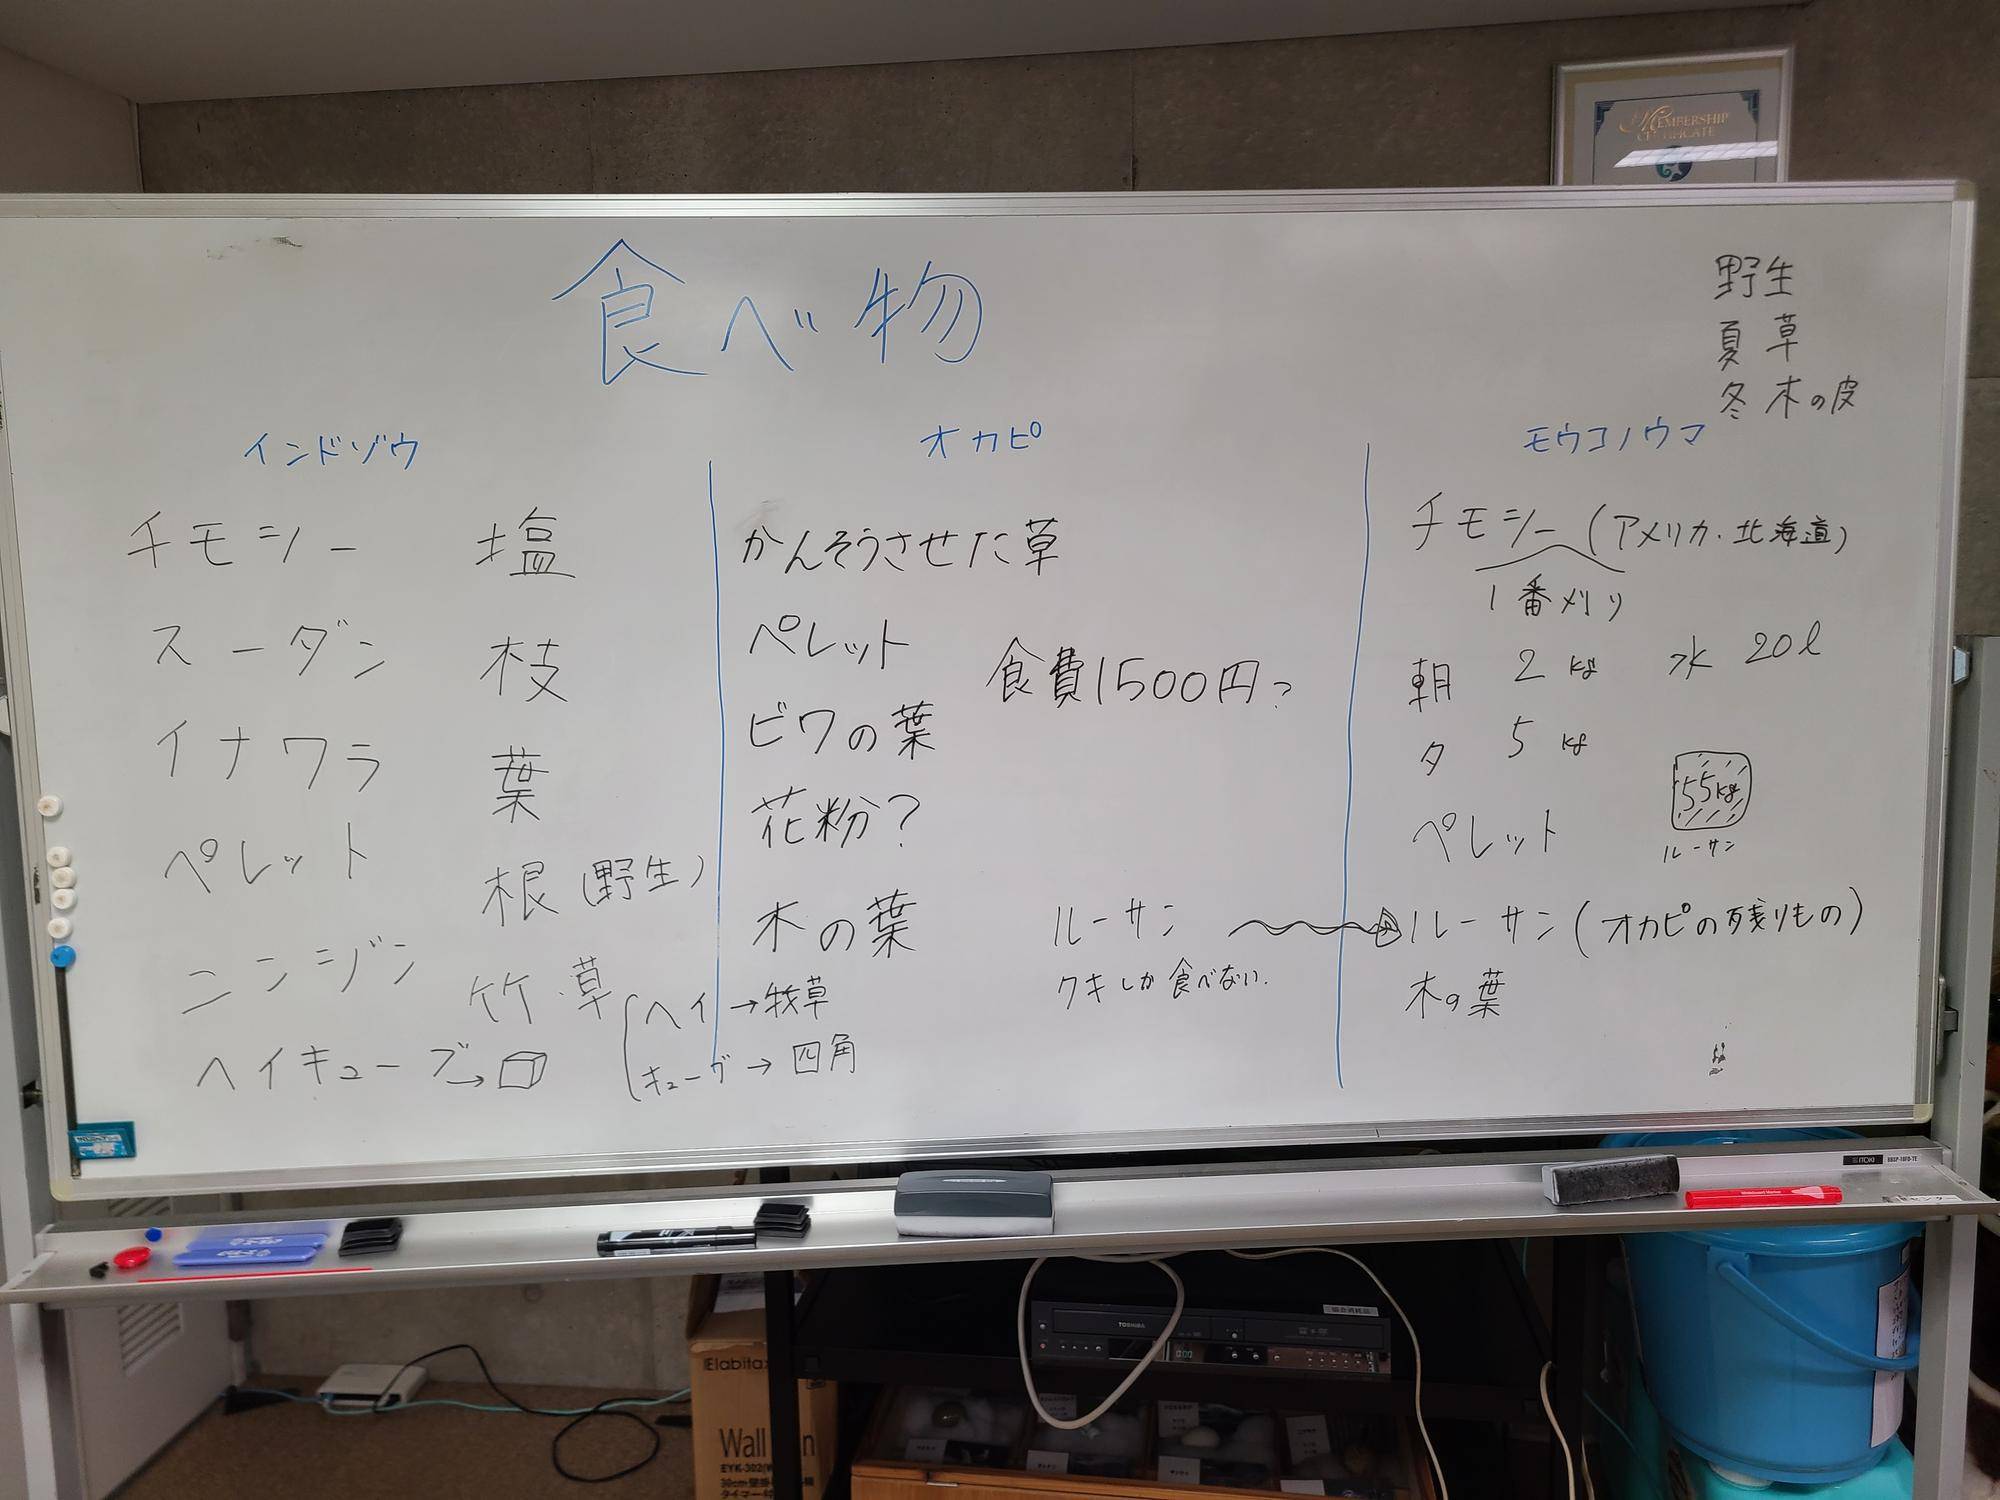 MEMBERSHIP
CERTIFICATE
食べ物
野生
夏 草
冬 木の皮
インドゾウ
チモシー 塩
スーダン 枝
イナワラ 葉
ペレット 根(野生)
ニンジン 竹・草
ヘイキューブ→
ヘイ→牧草
キューブ→四角
オカピ
かんそうさせた草
ペレット
食費1500円?
ビワの葉
花粉?
木の葉
ルーサン
クキしか食べない.
モウコノウマ
チモシー(アメリカ・北海道)
1番刈り
朝 2kg 水 20ℓ
夕 5kg
55kg
ルーサン
ペレット
ルーサン(オカピの残りもの)
木の葉
ITOKI
TOSHIBA
Elabitax
Wall
EYK-302